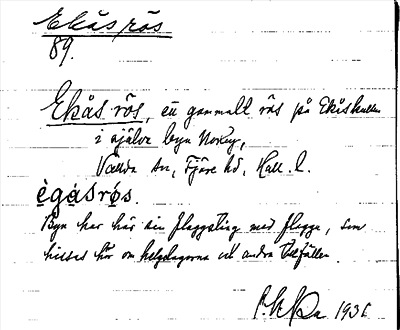 Ekås rös
89.
Ekås rös, en gammalt rös på Ekåskullen
i själva byn Norby,
Vallda sn, Fjäre hd, Hall. l.
ègasrø̀s.
Byn har här sin flaggstång med flagga, som
hissas här om helgdagarna och andra tillfällen.
1936